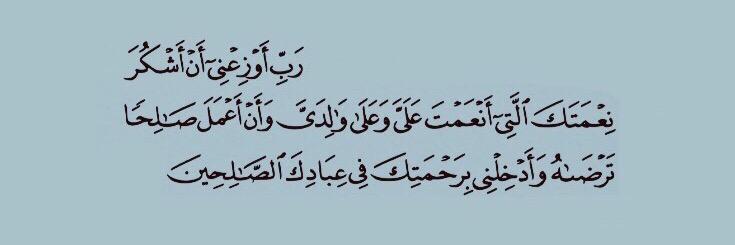 رَبِّ أَوۡزِعۡنِيٓ أَنۡ أَشۡكُرَ
نِعۡمَتَكَ ٱلَّتِيٓ أَنۡعَمۡتَ عَلَيَّ وَعَلَىٰ وَٰلِدَيَّ وَأَنۡ أَعۡمَلَ صَٰلِحٗا
تَرۡضَىٰهُ وَأَدۡخِلۡنِي بِرَحۡمَتِكَ فِي عِبَادِكَ ٱلصَّٰلِحِينَ